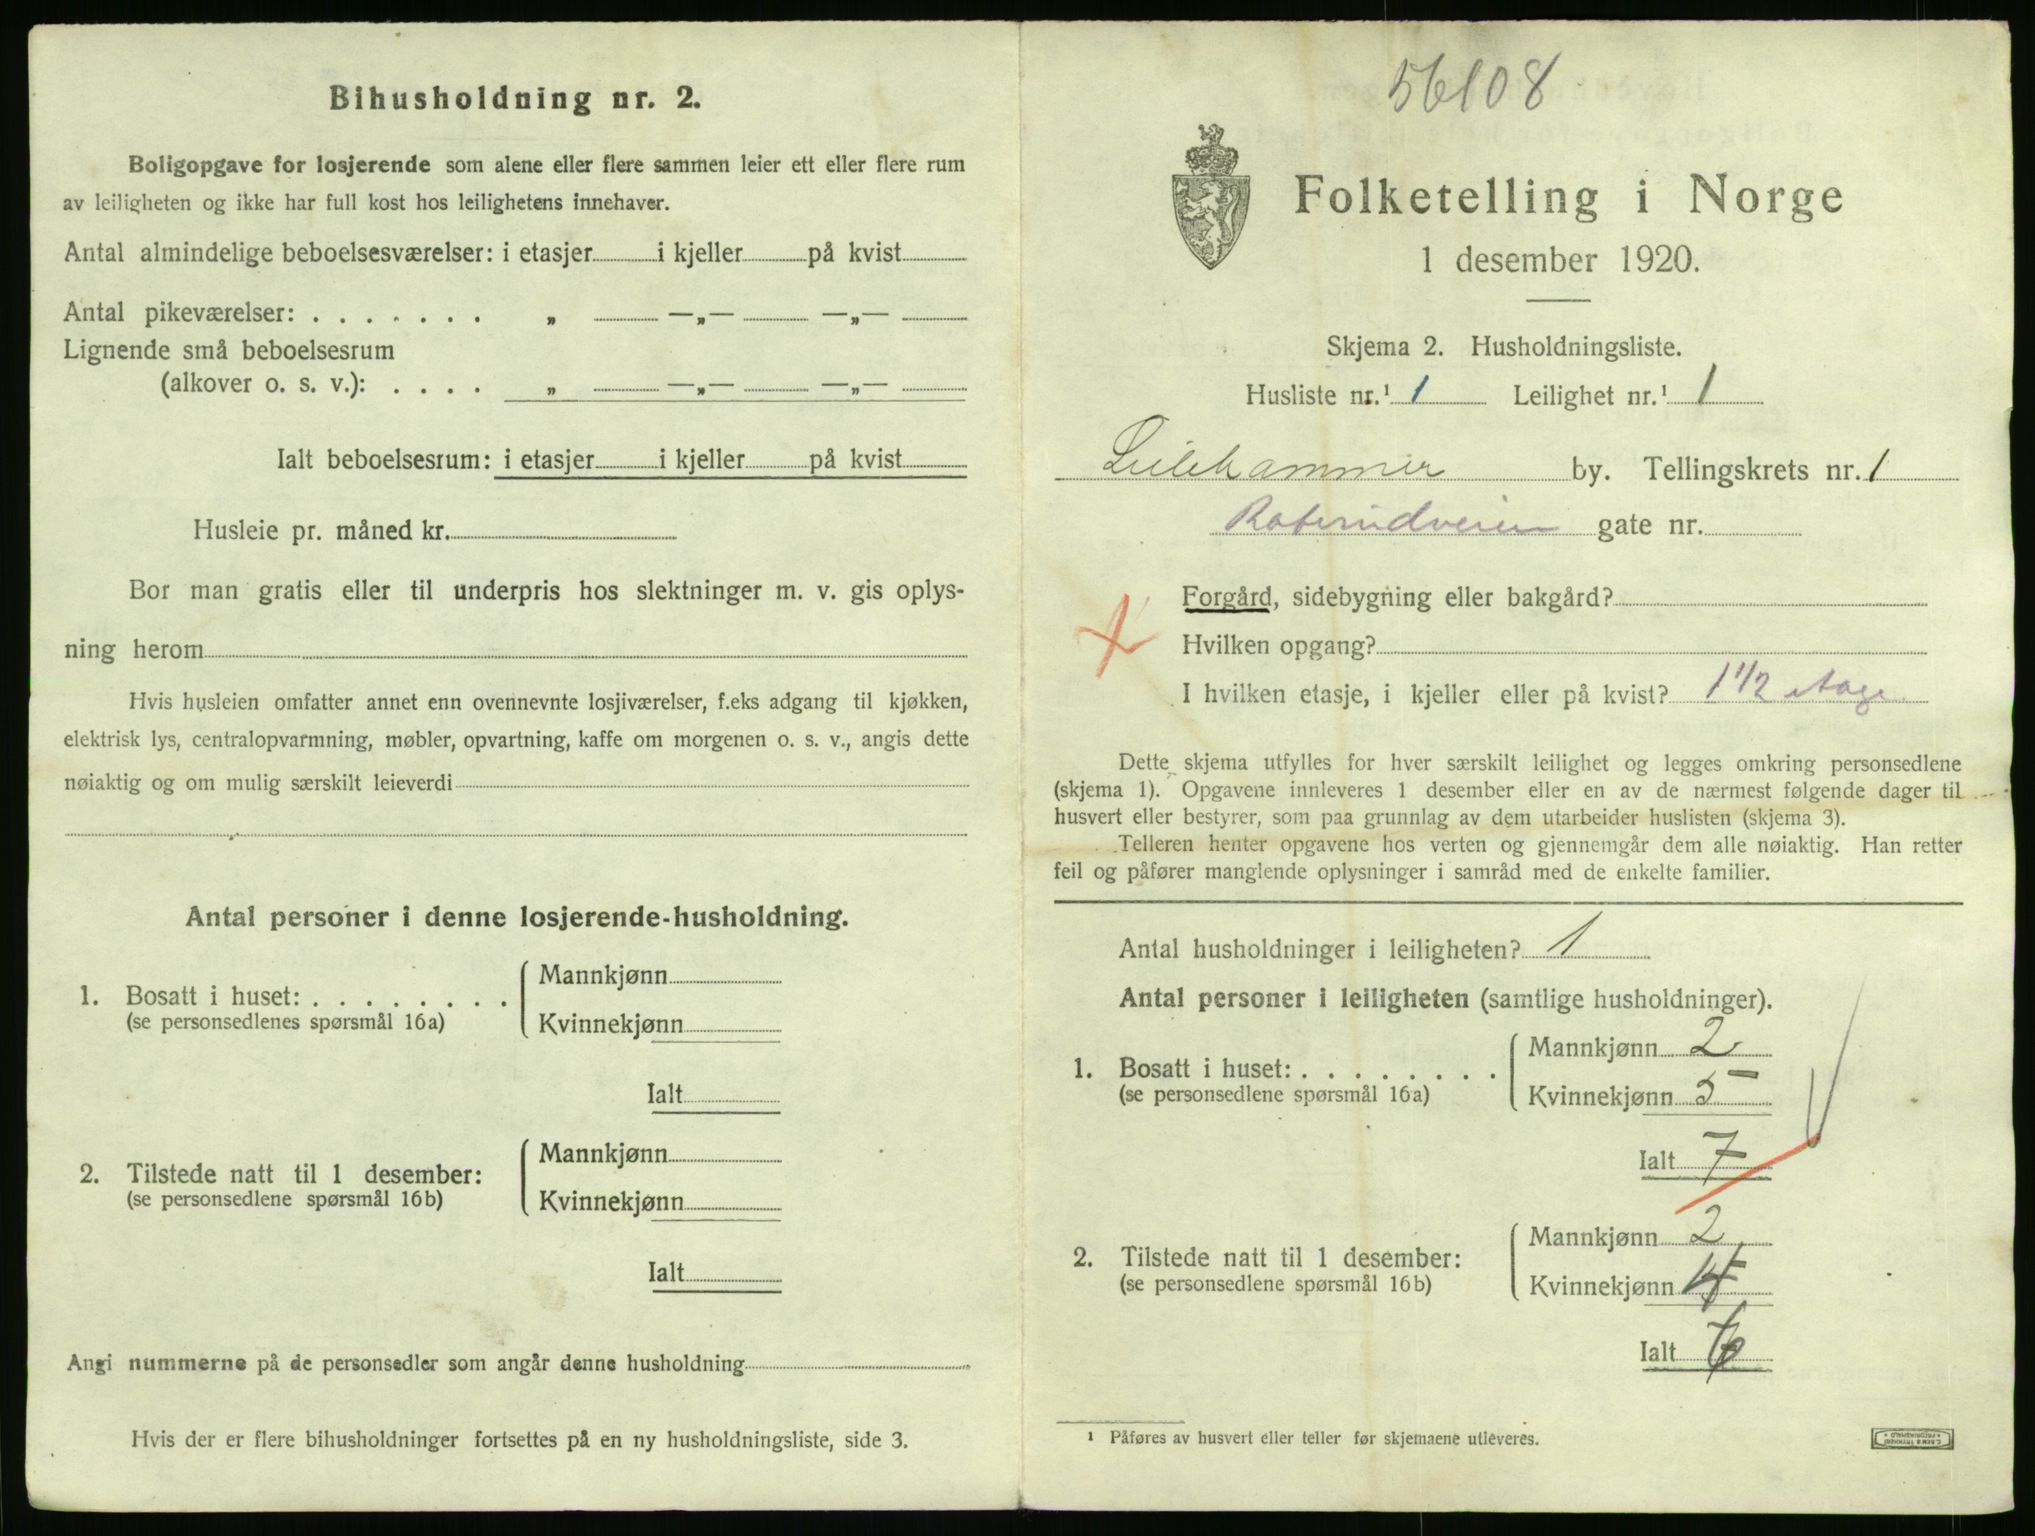 Bihusholdning nr. 2.
Boligopgave for losjerende som alene eller flere sammen leier ett eller flere rum
av leiligheten og ikke har full kost hos leilighetens innehaver.
Antal almindelige beboelsesværelser: i etasjer i kjeller på kvist
Antal pikeværelser: . . . . . . . „ —„— —„—
Lignende små beboelsesrum
(alkover o. s. v.): . . . . „ —„— —„—
Ialt beboelsesrum: i etasjer i kjeller på kvist
Husleie pr. måned kr.
Bor man gratis eller til underpris hos slektninger m. v. gis oplys-
ning herom
Hvis husleien omfatter annet enn ovennevnte losjiværelser, f.eks adgang til kjøkken,
elektrisk lys, centralopvarmning, møbler, opvartning, kaffe om morgenen o. s. v., angis dette
nøiaktig og om mulig særskilt leieverdi
Antal personer i denne losjerende-husholdning.
1. Bosatt i huset: . . . . . . . .
(se personsedlenes spørsmål 16a)
Mannkjønn
Kvinnekjønn
Ialt
2. Tilstede natt til 1 desember:
(se personsedlene spørsmål 16b)
Mannkjønn
Kvinnekjønn
Ialt
Angi nummerne på de personsedler som angår denne husholdning
Hvis der er flere bihusholdninger fortsettes på en ny husholdningsliste, side 3.
56108
Folketelling i Norge
1 desember 1920.
Skjema 2. Husholdningsliste.
Husliste nr.¹ 1 Leilighet nr.¹ 1
Lillehammer by. Tellingskrets nr. 1
gate nr.
Forgård, sidebygning eller bakgård?
Hvilken opgang?
I hvilken etasje, i kjeller eller på kvist? 1 1/2 etage
Dette skjema utfylles for hver særskilt leilighet og legges omkring personsedlene
(skjema 1). Opgavene innleveres 1 desember eller en av de nærmest følgende dager til
husvert eller bestyrer, som paa grunnlag av dem utarbeider huslisten (skjema 3).
Telleren henter opgavene hos verten og gjennemgår dem alle nøiaktig. Han retter
feil og påfører manglende oplysninger i samråd med de enkelte familier.
Antal husholdninger i leiligheten? 1
Antal personer i leiligheten (samtlige husholdninger).
1. Bosatt i huset: . . . . . . . .
(se personsedlene spørsmål 16a)
Mannkjønn 2
Kvinnekjønn 5
Ialt 7
2. Tilstede natt til 1 desember:
(se personsedlene spørsmål 16b)
Mannkjønn 2
Kvinnekjønn 4
Ialt 6
¹ Påføres av husvert eller teller før skjemaene utleveres.